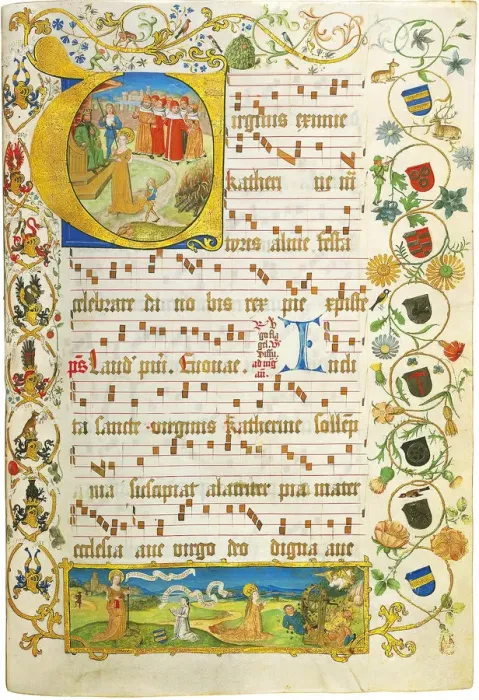 Uirginis eximie
katheri ne m
tyris alme festa
celebrare da no bis rex pie xpiste
ps Laud' pu'i. Euouae. Incli
ta sancte virginis katherine sollep
nia suscipiat alacriter pia mater
ecclesia aue virgo deo digna aue